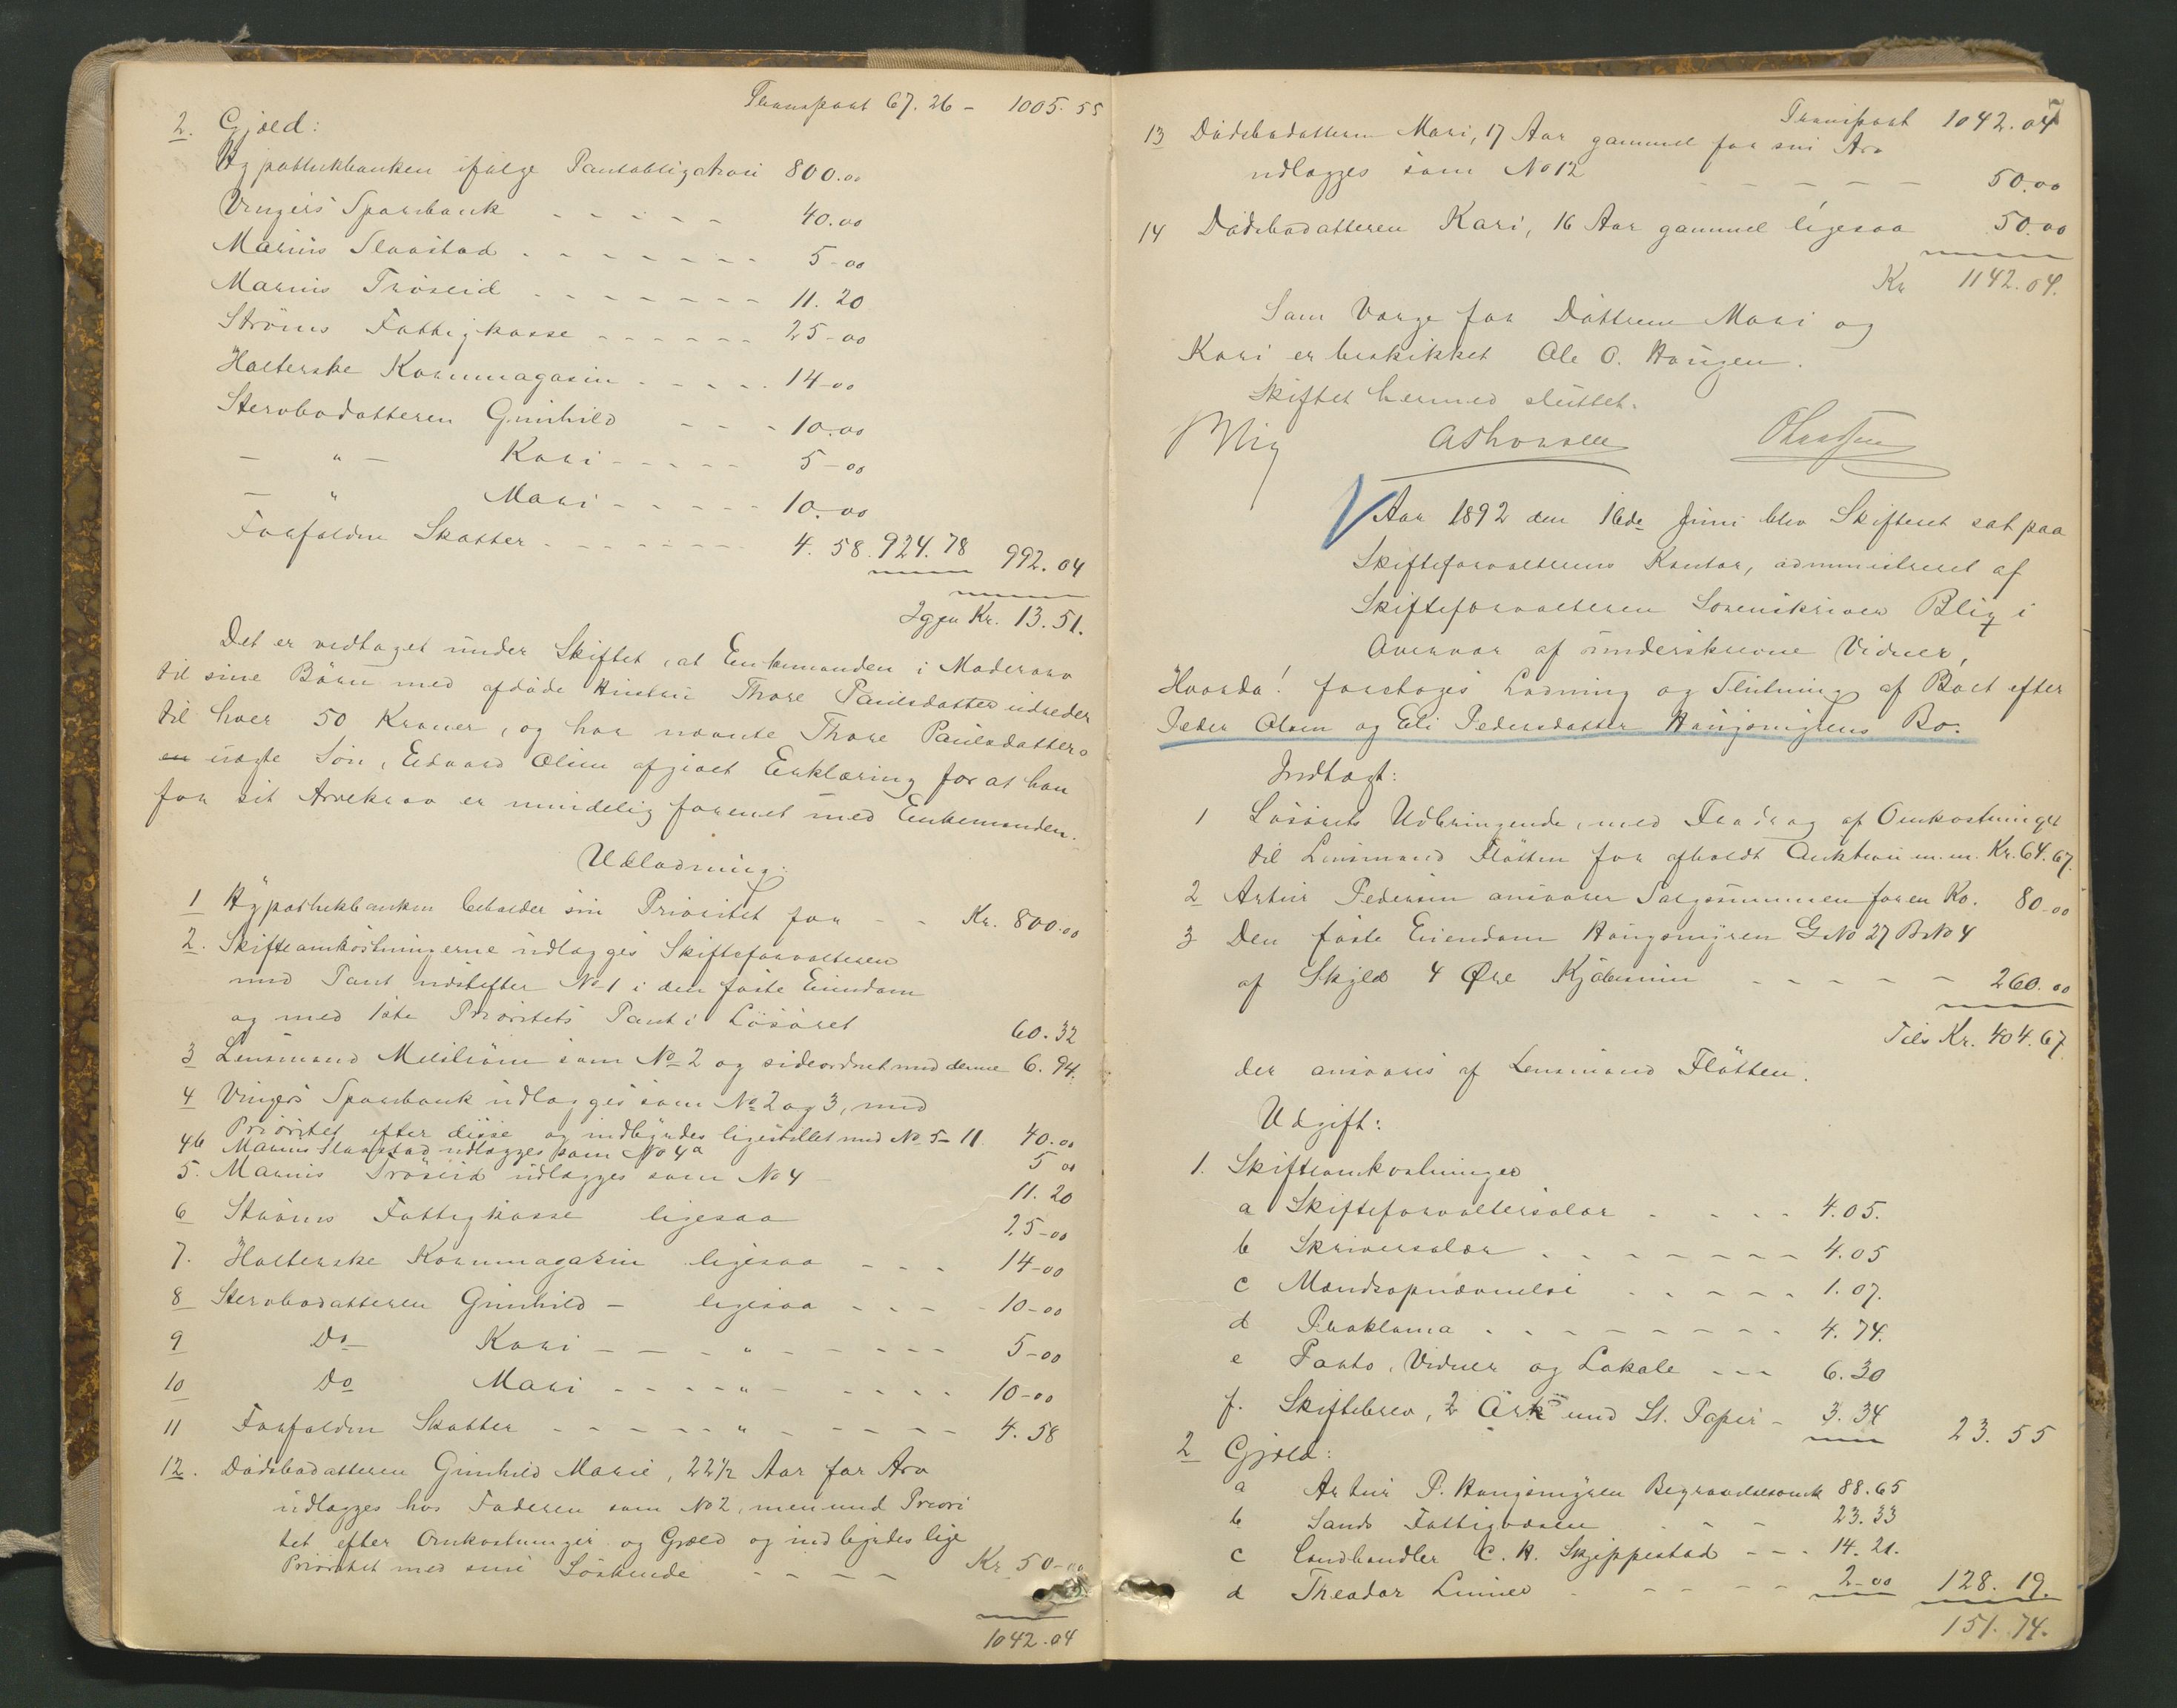 Transport 67.26 - 1005.55
2. Gjæld:
Hypothekbanken ifølge Pantobligation 800.00
Vingers Sparebank - - - - - 40.00
Marius Slaastad - - - - - - - 5-00
Marius Tröseid - - - - - - - 11.20
Ströms Fattigkasse - - - - - - 25-00
Holterske Kornmagasin - - - - 14-00
Stervbodatteren Gunhild - - - 10.00
- " - Kari - - - - - 5-00
- " Mari - - - - - 10.00
Forfaldne Skatter - - - - - - - 4.58. 924.78 992.04
Igjen Kr. 13.51.
Det er vedtaget under Skiftet, at Enkemanden i Moderarv
til sine Börn med afdöde Hustru Thore Paulsdatter udreder
til hver 50 Kroner, og har nævnte Thore Paulsdatters
uægte Sön, Edvard Olsen afgivet Erklæring for at han
for sit Arvekrav er mindelig forenet med Enkemanden.
Udlodning:
1 Hypothekbanken beholder sin Prioritet for - - Kr. 800.00
2. Skifteomkostningerne udlægges Skifteforvalteren
med Pant næstefter No 1 i den faste Eiendom
og med 1ste Prioritets Pant i Lösöret 60.32
3 Lensmand Melström som No 2 og sideordnet med denne 6.94.
4 Vingers Sparebank udlægges som No 2 og 3, med
Prioritet efter disse og indbyrdes ligestillet med No 5-11. 40.00
4b Marius Slaastad udlægges som No 4a 5 00
5. Marius Tröseid udlægges som No 4 - 11.20
6 Ströms Fattigkasse ligesaa 25-00
7. Holterske Kornmagasin ligesaa - - - 14-00
8 Stervbodatteren Gunhild - ligesaa - - - - 10-00
9 Do Kari - - - " - - - - - 5-00
10 Do Mari - - - - " - - - - - 10-00
11 Forfaldne Skatter - - - - - " - - - - - 4.58
12. Dödsbodatteren Gunhild Marie, 22 1/2 Aar for Arv
udlægges hos Faderen som No 2, men med Priori
tet efter Omkostninger og Gjæld og indbyrdes lige
Prioritet med sine Söskende - - - - Kr. 50-00
1042.04
Transport 1042.04
13 Dödsbodatteren Mari, 17 Aar gammel for sin Arv
udlægges som No 12 - - - - - 50.00
14 Dödsbodatteren Kari, 16 Aar gammel ligesaa 50.00
Kr 1142.04.
Som Værge for Döttrene Mari og
Kari er beskikket Ole O. Haugen.
Skiftet hermed sluttet.
Blig
Aar 1892 den 16de Juni blev Skifteret sat paa
Skifteforvalterens Kontor, administreret af
Skifteforvalteren Sorenskriver Blig i
Overvær af underskrevne Vidner,
Hvorda! foretoges Lodning og Slutning af Boet efter
Peder Olsen og Eli Pedersdatter Haugsmyrens Bo.
Indtægt:
1 Lösörets Udbringende, med Fradrag af Omkostninger
til Lensmand Flötten for afholdt Auktion m.m. Kr. 64.67.
2 Artur Pedersen ansvarer Salgssummen for en Ko. 80-00
3 Den faste Eiendom Haugsmyren G No 27 B No 4
af Skyld 4 Øre Kjöbesum - - - - - 260.00
Tils Kr. 404.67.
der ansvares af Lensmand Flötten.
Udgift:
1. Skifteomkostninger
a Skifteforvaltersalær - - - - 4.05.
b Skriversalær - - - - - - - 4.05
c Mændsopnævnelse - - - - - 1.07.
d Proklama - - - - - - - - 4.74.
e Porto, Vidner og Lokale - - - 6.30
f. Skiftebrev, 2 Ark med St. Papir - 3.34 23.55
2 Gjæld:
a Artur P. Haugsmyren Begravelsesomk 88.65
b Sands Fattigvæsen - - - 23.33
c Landhandler C. A. Skjeppestad - - - 14.21.
d Theodor Linnes - - - - - 2-00 128.19.
151.74.